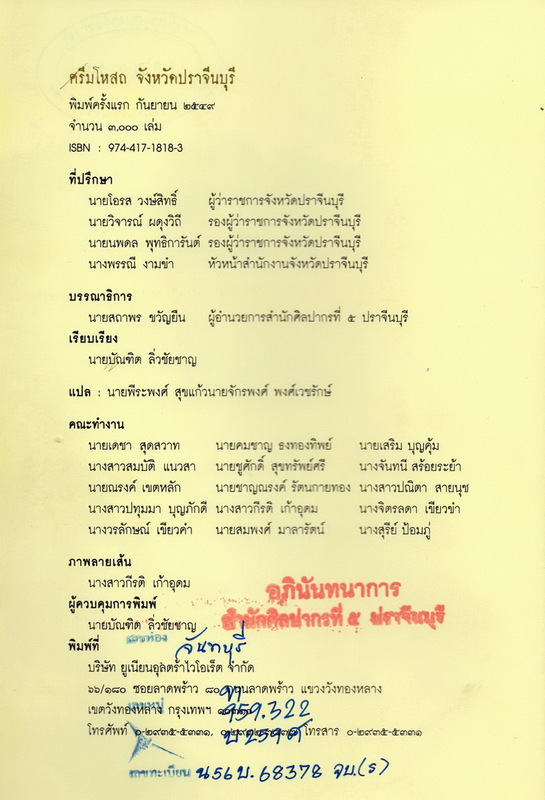 ศรีมโหสถ จังหวัดปราจีนบุรี
พิมพ์ครั้งแรก กันยายน ๒๕๔๙
จำนวน ๓,๐๐๐ เล่ม
ISBN : 974-417-1818-3
ที่ปรึกษา
นายโอรส วงษ์สิทธิ์ ผู้ว่าราชการจังหวัดปราจีนบุรี
นายวิจารณ์ ผดุงวิถี รองผู้ว่าราชการจังหวัดปราจีนบุรี
นายนพดล พุทธิการันต์ รองผู้ว่าราชการจังหวัดปราจีนบุรี
นางพรรณี งามขำ หัวหน้าสำนักงานจังหวัดปราจีนบุรี
บรรณาธิการ
นายสถาพร ขวัญยืน ผู้อำนวยการสำนักศิลปากรที่ ๕ ปราจีนบุรี
เรียบเรียง
นายบัณฑิต ลิ่วชัยชาญ
แปล : นายพีระพงศ์ สุขแก้วนายจักรพงศ์ พงศ์เวชรักษ์
คณะทำงาน
นายเดชา สุดสวาท นายคมชาญ ธงทองทิพย์ นายเสริม บุญคุ้ม
นางสาวสมบัติ แนวสา นายชูศักดิ์ สุขทรัพย์ศรี นางจันทนี สร้อยระย้า
นายณรงค์ เขตหลัก นายชาญณรงค์ รัตนกายทอง นางสาวปณิตา สายนุช
นางสาวปทุมมา บุญภักดี นางสาวกีรติ เก้าอุดม นางจิตรลดา เขียวขำ
นางวรลักษณ์ เขียวคำ นายสมพงศ์ มาลารัตน์ นางสุรีย์ ป้อมภู่
ภาพลายเส้น
นางสาวกีรติ เก้าอุดม
อภินันทนาการ
ผู้ควบคุมการพิมพ์
สำนักศิลปากรที่ ๕ ปราจีนบุรี
นายบัณฑิต ลิ่วชัยชาญ
เลขห้อง
พิมพ์ที่
จันทบุรี
บริษัท ยูเนียนอุลตร้าไวโอเร็ต จำกัด
๖๖/๑๘๐ ซอยลาดพร้าว ๘๐ ถนนลาดพร้าว แขวงวังทองหลาง
เลขหมู่
959.322
เขตวังทองหลาง กรุงเทพฯ
โทรศัพท์ ๐-๒๙๓๕-๕๓๓๑, โทรสาร ๐-๒๙๓๕-๕๓๓๑
เลขทะเบียน น56บ.68378 จบ.(ร)